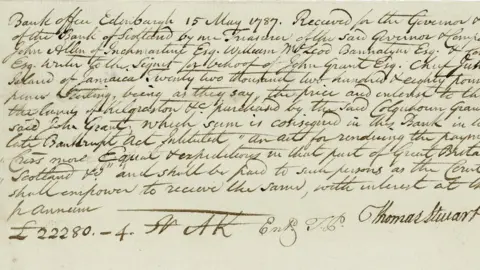 Bank office Edenburgh 15 May 1787. Received for the Governor & Comp
of the Bank of Scotland by me Treasurer of the said Governor & Comp
John Allen of Inchmartine Esq. William McLeod Bannatyne Esq. &
Esq. Writer to the Signet for behoof of John Grant Esq. Chief Just
Island of Jamaica Twenty two thousand two hundred & eighty poun
pence Sterling, being as they say, the price and interest to th
the lands of Kilgraston &c purchased by the said Colquhoun Gran
said John Grant, which sum is consigned in this Bank in
late Bankrupt Act Intituled "An act for rendering the paym
Cr͞ers more Equal & expeditious in that part of Great Britai
Scotland &c" and shall be paid to such persons as the Court
shall empower to recieve the same, with interest at th
₱ Annum
£22280. – 4. AK Entd Thomas Stewart